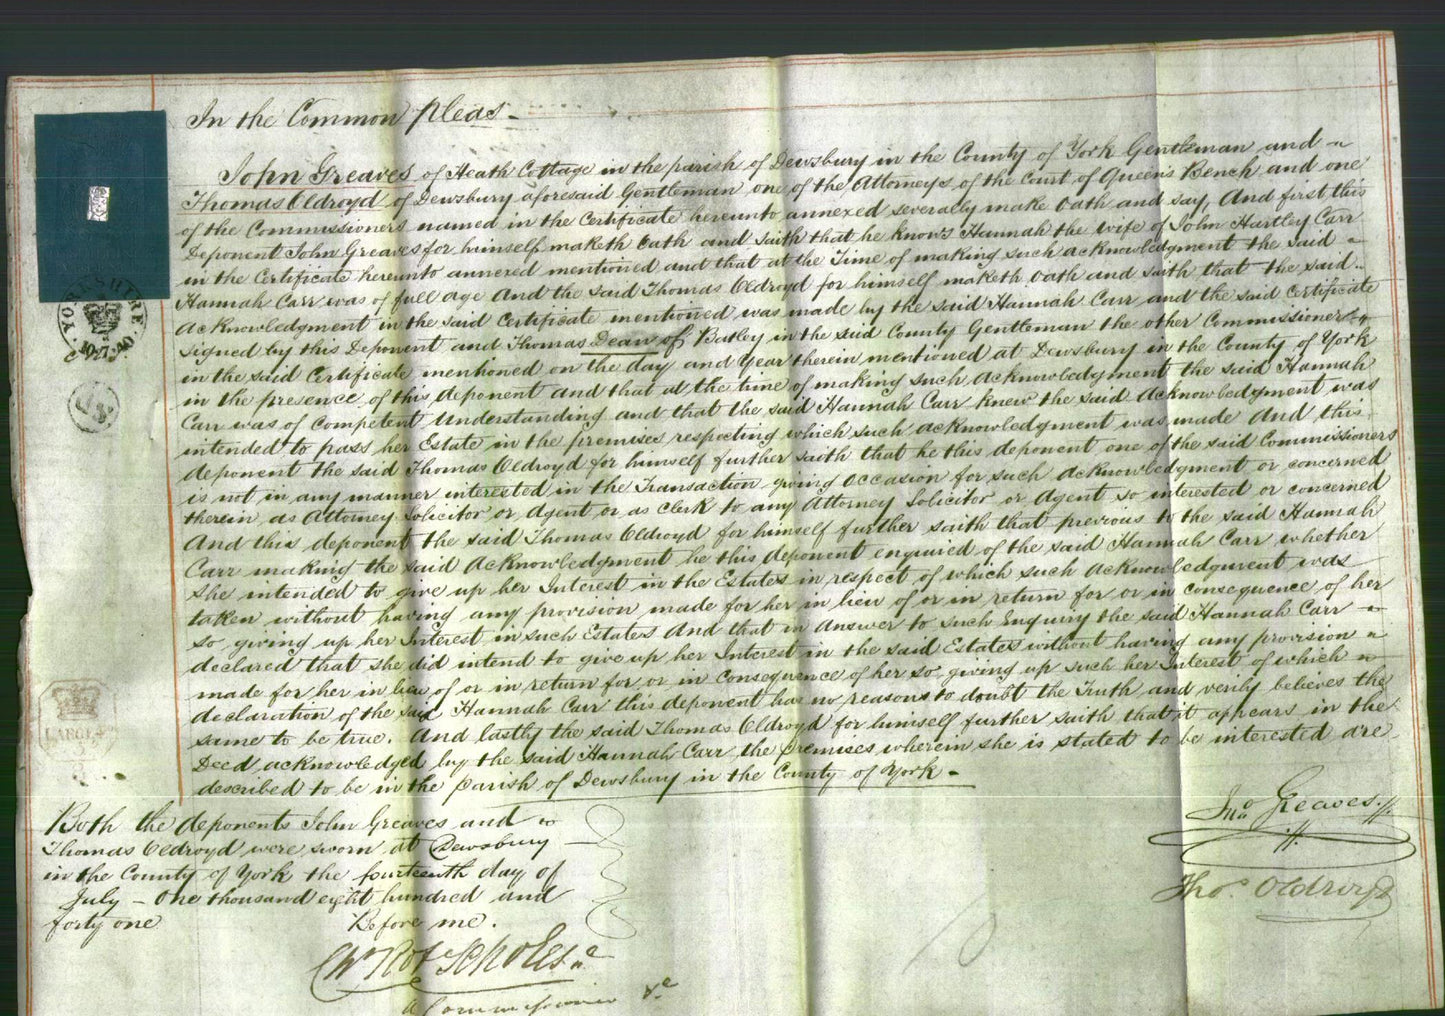 In the Common Pleas -
John Greaves of Heath Cottage in the parish of Dewsbury in the County of York Gentleman and
Thomas Oldroyd of Dewsbury aforesaid Gentleman one of the Attorneys of the Court of Queens Bench and one
of the Commissioners named in the Certificate hereunto annexed severally make Oath and say, And first this
Deponent John Greaves for himself maketh Oath and saith that he knows Hannah the wife of John Hartley Carr
in the Certificate hereunto annexed mentioned and that at the Time of making such acknowledgment the said
Hannah Carr was of full age And the said Thomas Oldroyd for himself maketh Oath and saith that the said
Acknowledgment in the said Certificate mentioned was made by the said Hannah Carr and the said Certificate
signed by this Deponent and Thomas Dean of Batley in the said County Gentleman the other Commissioner
in the said Certificate mentioned on the day and year therein mentioned at Dewsbury in the County of York
in the presence of this deponent and that at the time of making such Acknowledgment the said Hannah
Carr was of Competent Understanding and that the said Hannah Carr knew the said Acknowledgment was
intended to pass her Estate in the premises respecting which such acknowledgment was made And this
deponent the said Thomas Oldroyd for himself further saith that he this deponent one of the said Commissioners
is not in any manner interested in the Transaction giving occasion for such Acknowledgment or concerned
therein as Attorney Solicitor or Agent or as clerk to any Attorney Solicitor or Agent so interested or concerned
And this deponent the said Thomas Oldroyd for himself further saith that previous to the said Hannah
Carr making the said Acknowledgment he this deponent enquired of the said Hannah Carr whether
she intended to give up her Interest in the Estates in respect of which such Acknowledgment was
taken without having any provision made for her in lieu of or in return for or in consequence of her
so giving up her Interest in such Estates And that in Answer to such Enquiry the said Hannah Carr
declared that she did intend to give up her Interest in the said Estates without having any provision
made for her in lieu of or in return for or in consequence of her so giving up such her Interest of which
declaration of the said Hannah Carr this deponent has no reasons to doubt the Truth and verily believes the
same to be true. And lastly the said Thomas Oldroyd for himself further saith that it appears in the
Deed acknowledged by the said Hannah Carr the premises wherein she is stated to be interested are
described to be in the parish of Dewsbury in the County of York -
Jno. Greaves.
Thos. Oldroyd
Both the deponents John Greaves and
Thomas Oldroyd were sworn at Dewsbury
in the County of York the fourteenth day of
July - One thousand eight hundred and
forty one
Before me.
A Commissioner &c
YORKSHIRE